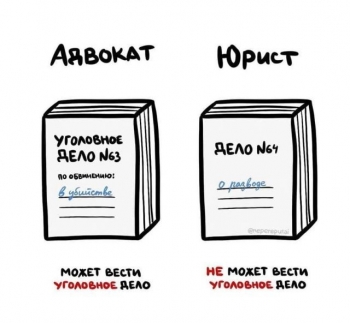 Адвокат
Юрист
Уголовное
дело №63
по обвинению:
в убийстве
Дело №64
о разводе
может вести
уголовное дело
не может вести
уголовное дело